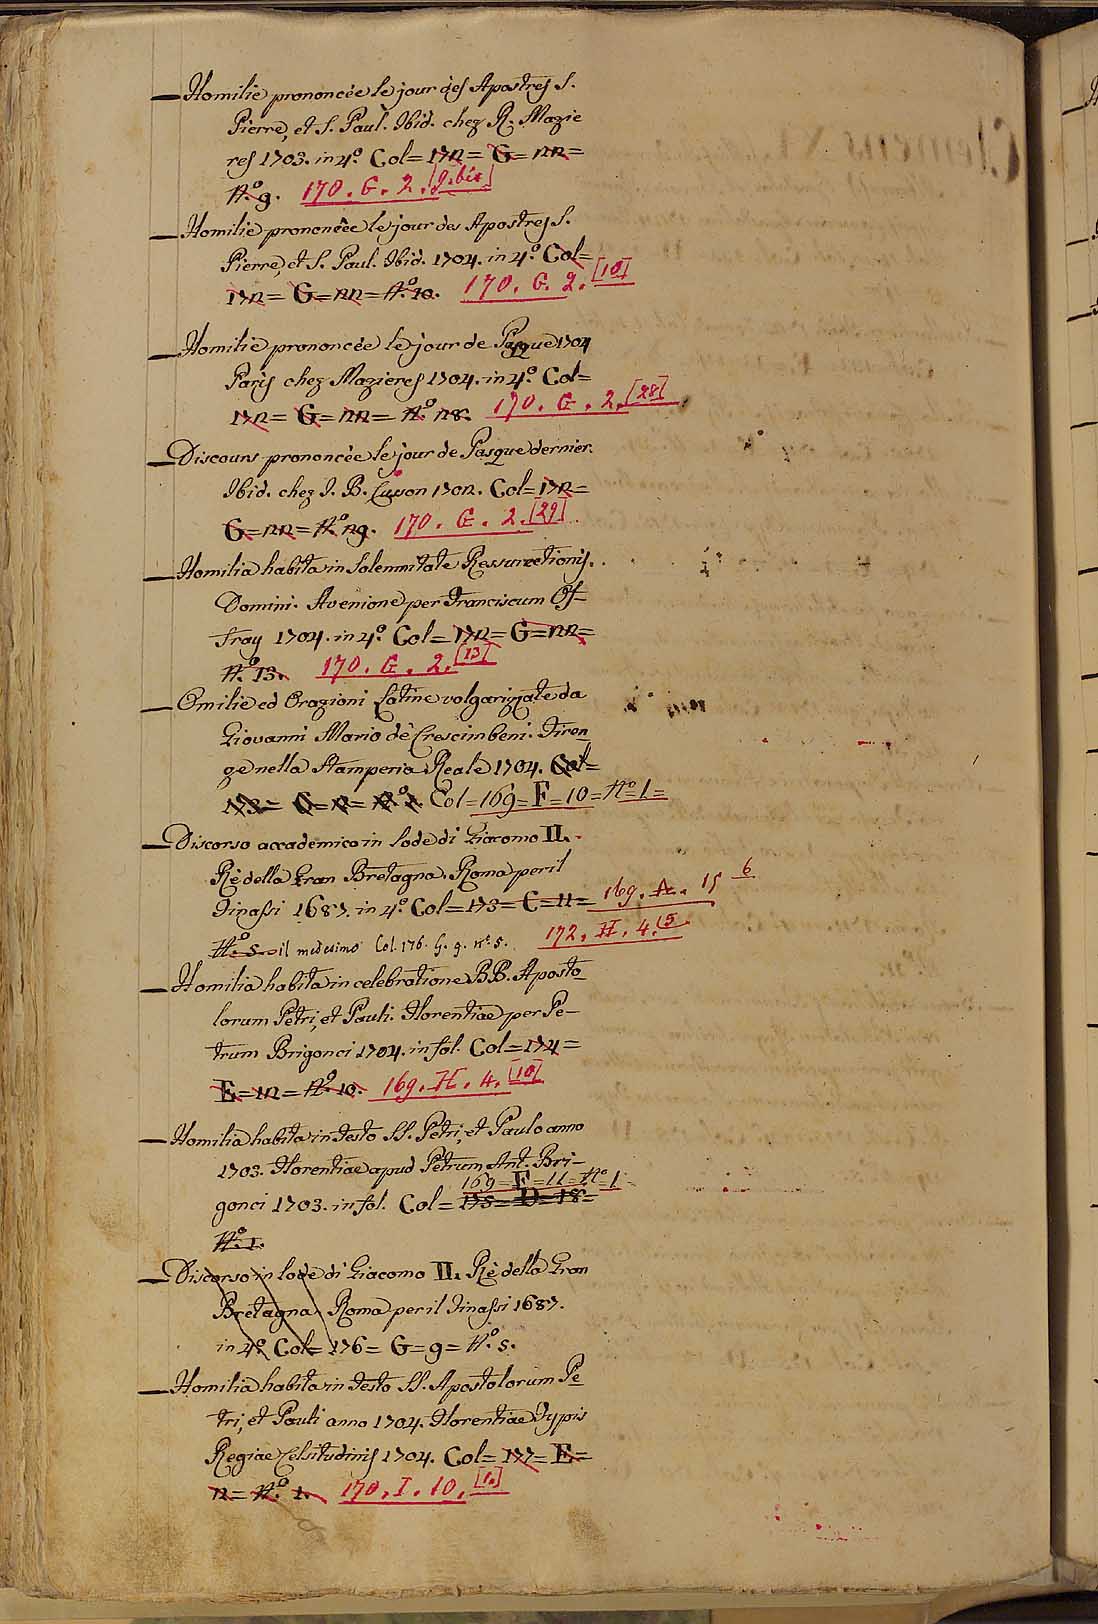 — Homilie prononcée le jour des Apostres S.
Pierre, et S. Paul. Ibid. chez R. Mazie
res 1703. in 4.º Col= 172= G= 22=
N.º 9. 170. G. 2. [9.bis]
— Homilie prononcèe le jour des Apostres S.
Pierre, et S. Paul. Ibid. 1704. in 4.º Col=
172= G= 22= N.º 10. 170. G. 2. [10]
— Homilie prononcée le jour de Pasque 1704
Paris chez Mazieres 1704. in 4.º Col=
172= G= 22= N.º 28. 170. G. 2. [28]
— Discours prononcée le jour de Pasque dernier.
Ibid. chez I. B. Cusson 1702. Col= 172=
G= 22= N.º 29. 170. G. 2. [29]
— Homilia habita in Solemnitate Ressurectionis.
Domini. Avenione per Franciscum Of-
fray 1704. in 4.º Col= 172= G= 22=
N.º 13. 170. G. 2. [13]
— Omilie ed Orazioni Latine volgarizzate da
Giovanni Mario de Crescimbeni. Firen
ze nella Stamperia Reale 1704. Col=
173= G= 2= N.º 1. Col=169=F=10=Nº1=
— Discorso accademico in lode di Giacomo II.
Rè della Gran Bretagna. Roma per il
Tinassi 1687. in 4.º Col= 173= C= 11= 169. A. 15 6
N.º 5. il medesimo Col. 176. G. 9. nº. 5. 172. H. 4. (5
— Homilia habita in celebratione B.B. Aposto
lorum Petri, et Pauli. Florentiae per Pe-
trum Brigonci 1704. in fol. Col= 174=
E= 12= N.º 10. 169. H. 4. [10]
— Homilia habita in Festo SS. Petri, et Paulo anno
1703. Florentiae apud Petrum Ant. Bri-
169=F=11=Nº1
gonci 1703. in fol. Col= 175= D= 18=
N.º 1.
— Discorso in lode di Giacomo II. Rè della Gran
Bretagna. Roma per il Tinassi 1687.
in 4.º Col= 176= G= 9= N.º 5.
— Homilia habita in Festo SS. Apostolorum Pe
tri, et Pauli anno 1704. Florentiae Typis
Regiae Celsitudinis 1704. Col= 177= E=
2= N.º 1. 170. I. 10. [1.]